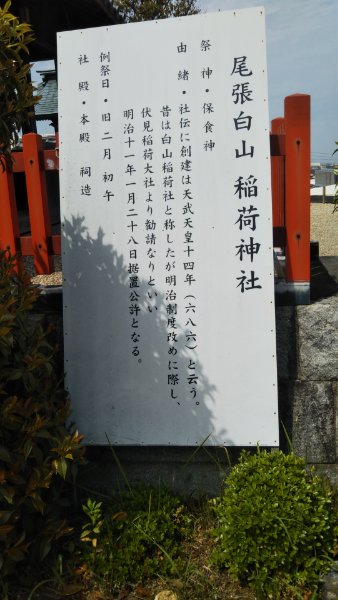 尾張白山 稲荷神社
祭 神・保食神
由 緒・社伝に創建は天武天皇十四年（六八六）と云う。
昔は白山稲荷社と称したが明治制度改めに際し、
伏見稲荷大社より勧請なりといい
明治十一年一月二十八日据置公許となる。
例祭日・旧二月初午
社 殿・本殿 祠造